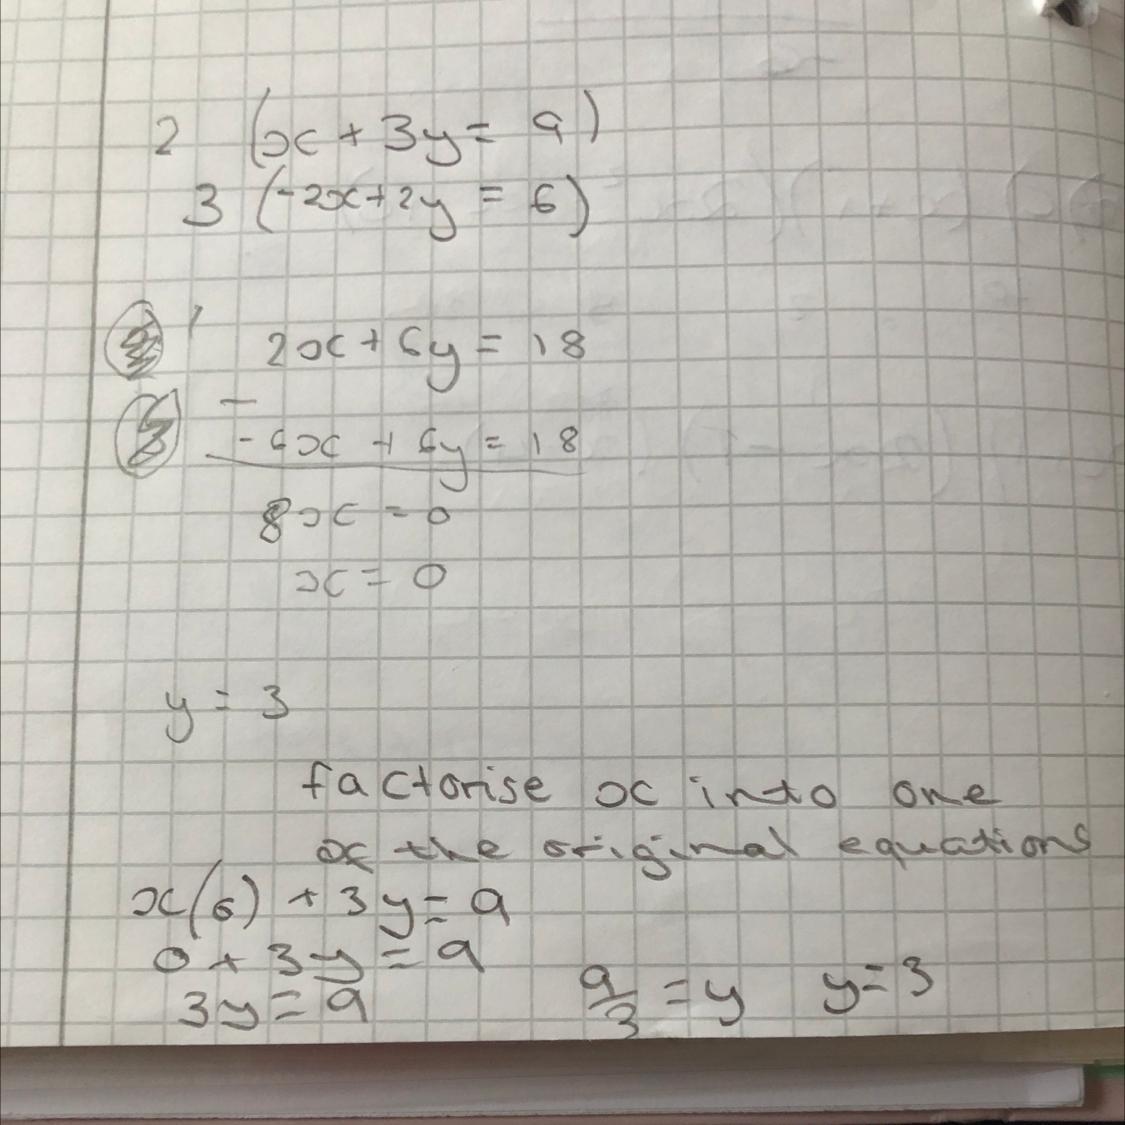 2 (x + 3y = 9)
3 (-2x + 2y = 6)
2x + 6y = 18
-
-6x + 6y = 18
8x = 0
x = 0
y = 3
factorise x into one
of the original equations
x(0) + 3y = 9
0 + 3y = 9
3y = 9
9/3 = y y = 3